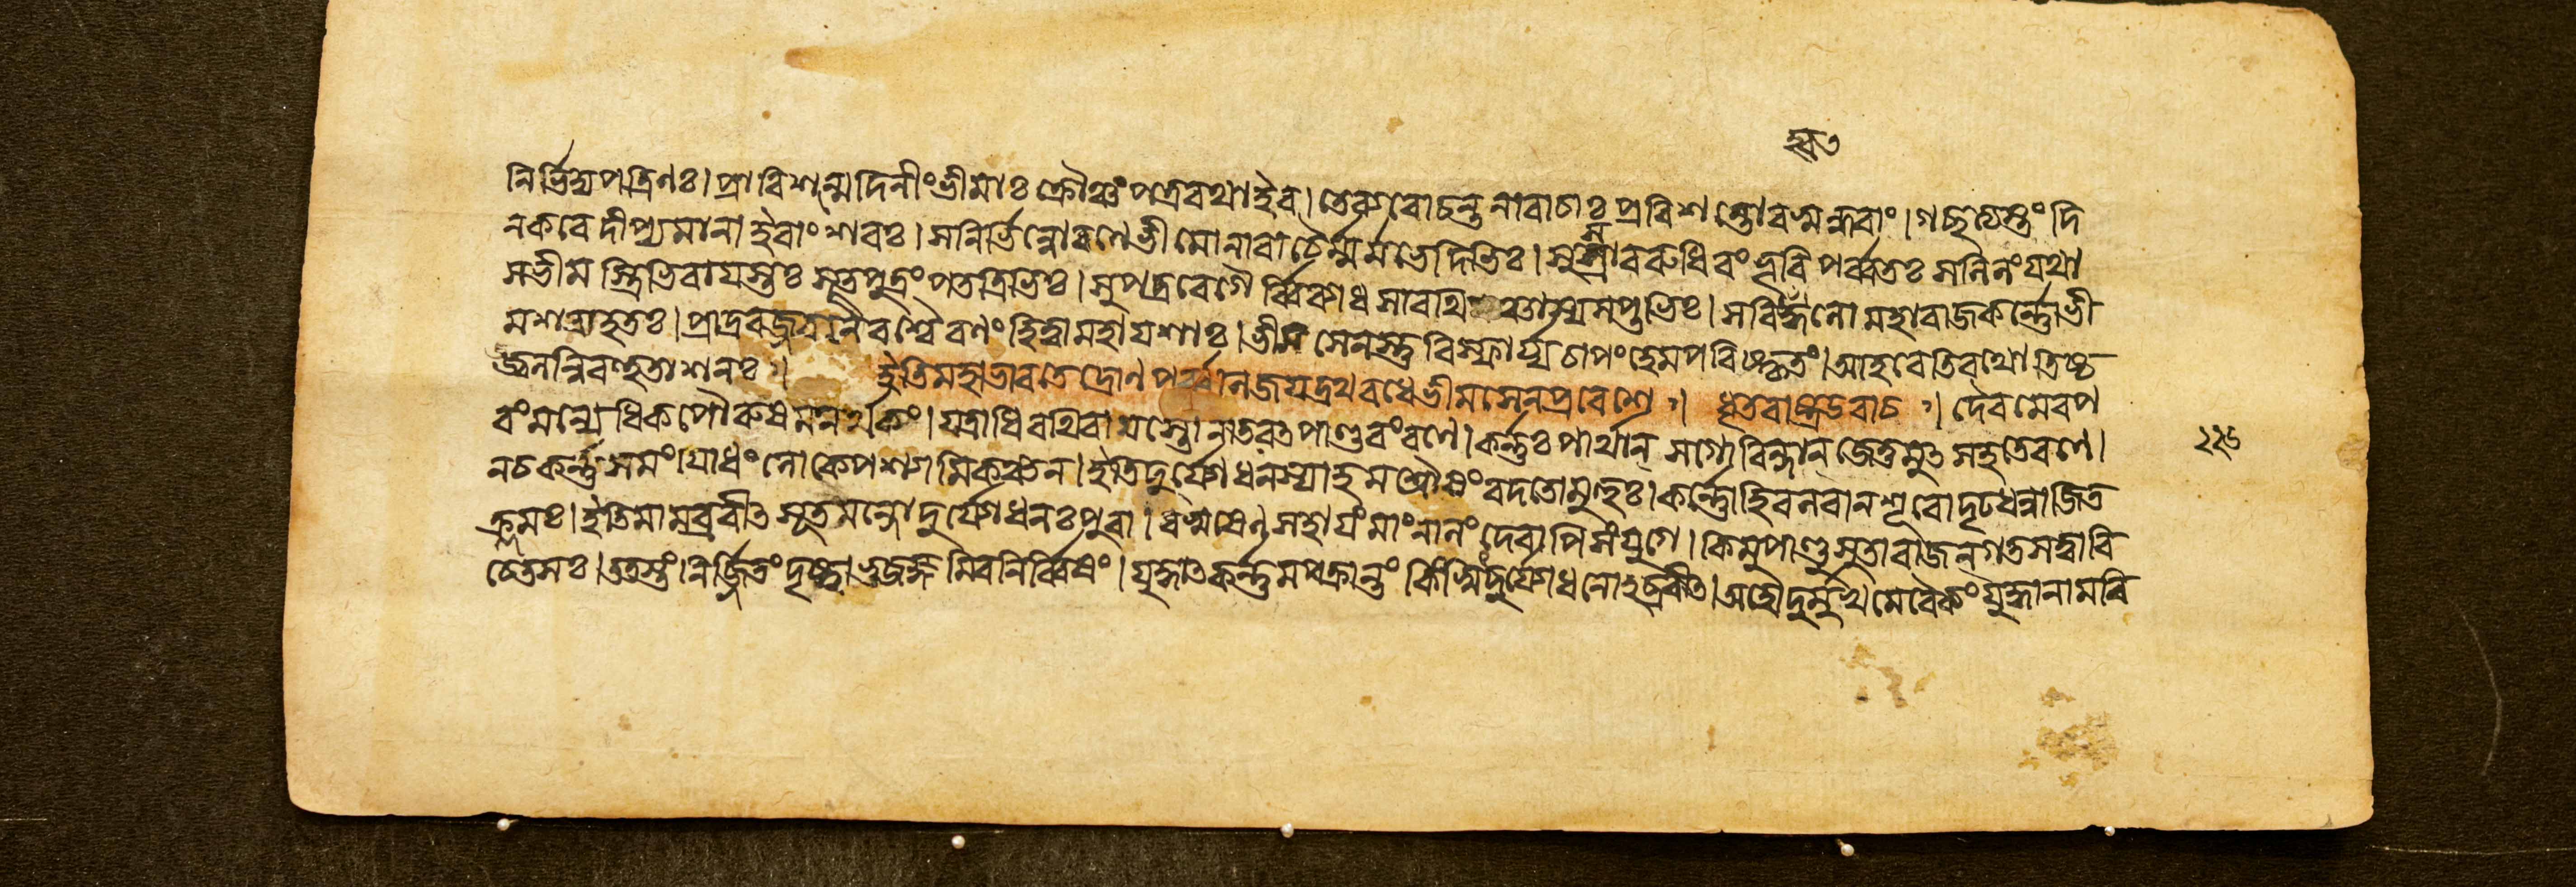 নির্ভিদ্যপত্রিণঃ। প্রাবিশন্মেদিনীং ভীমাঃ ক্রৌঞ্চং পত্ররথা ইব। তে ব্যরোচন্ত নারাচাঃ প্রবিশন্তো বসুন্ধরাং। গচ্ছত্যস্তং দি
নকরে দীপ্যমানা ইবাংশবঃ। স নির্ভিন্নো রণে ভীমো নারাচৈর্ম্মর্মভেদিভিঃ। সুস্রাব রুধিরং ভূরি পর্ব্বতঃ সলিলং যথা
স ভীমস্ত্রিভিরায়স্তঃ সূতপুত্রং পতত্রিভিঃ। সুপর্ণবেগৈর্ব্বিব্যাধ সারথিঞ্চাস্য সপ্তভিঃ। স বিহ্বলো মহারাজ কর্ণ্ণো ভী
মশরাহতঃ। প্রাদ্রবজ্জবনৈরশ্বৈ রণং হিত্বা মহাযশাঃ। ভীমসেনস্তু বিস্ফার্য্য চাপং হেমপরিষ্কৃতং। আহবেতিরথোতিষ্ঠ
জ্জ্বলন্নিব হুতাশনঃ। ইতি মহাভারতে দ্রোণপর্ব্বনি জয়দ্রথবধে ভীমসেনপ্রবেশে। ধৃতরাষ্ট্র উবাচ। দৈবমেব প
রং মন্যে ধিক পৌরুষমনর্থকং। যত্রাধিরথিরায়স্তো নাতরৎ পাণ্ডবং রণে। কর্ণ্ণঃ পার্থান্ সগোবিন্দান্ জেতুমুৎসহতে রণে।
ন চ কর্ণ্ণসমং যোধং লোকে পশ্যামি কঞ্চন। ইতি দুর্যোধনস্যাহমশ্রৌষং বদতো মুহুঃ। কর্ণ্ণো হি বলবান্ শূরো দৃঢধন্বা জিত
ক্লমঃ। ইতি মামব্রবীৎ সূত মন্দো দুর্যোধনঃ পুরা। বসুষেণসহায়ং মাং নালং দেবাপি সংযুগে। কিমু পাণ্ডুসুতা রাজন্ গতসত্বা বি
চেতসঃ। তত্রস্তং নির্জ্জিতং দৃষ্ট্বা ভুজঙ্গমিব নির্ব্বিষং। যুদ্ধাৎ কর্ণ্ণমপক্রান্তং কিংস্বিদ্দুর্যোধনোব্রবীৎ। অহো দুর্ম্মুখমেবৈকং যুদ্ধানামবি